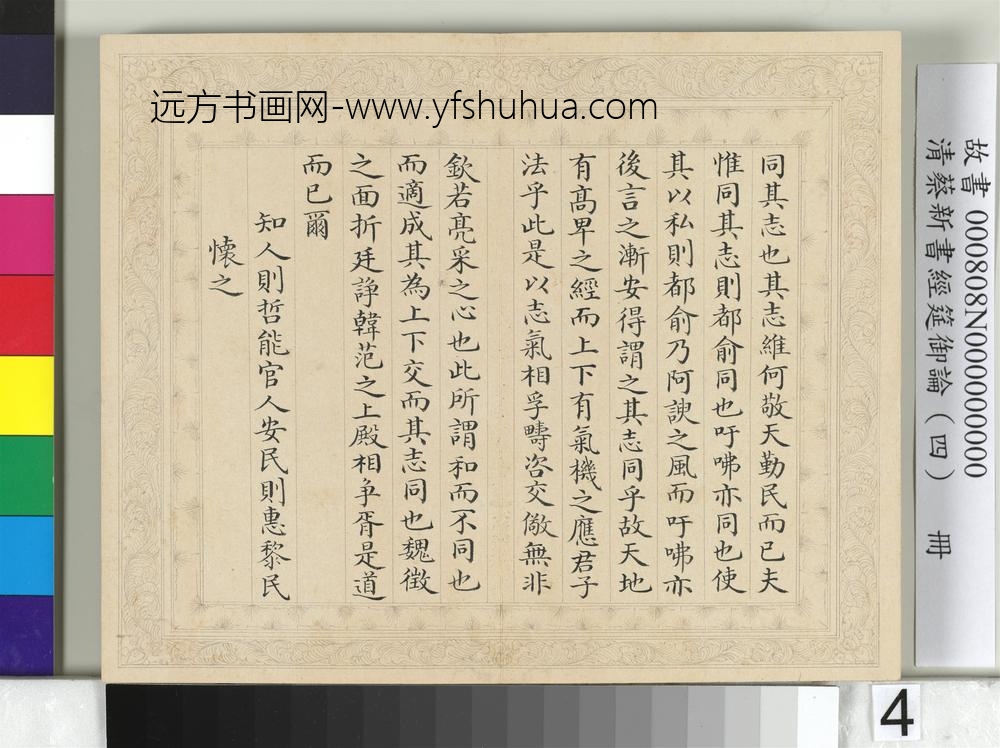 远方书画网-www.yfshuhua.com
同其志也其志維何敬天勤民而已夫
惟同其志則都俞同也吁咈亦同也使
其以私則都俞乃阿諛之風而吁咈亦
後言之漸安得謂之其志同乎故天地
有髙卑之經而上下有氣機之應君子
法乎此是以志氣相孚疇咨交儆無非
欽若亮采之心也此所謂和而不同也
而適成其為上下交而其志同也魏徵
之面折廷諍韓范之上殿相争胥是道
而已爾
知人則哲能官人安民則惠黎民
懷之
故書 000808N000000000
清蔡新書經筵御論（四） 冊
4